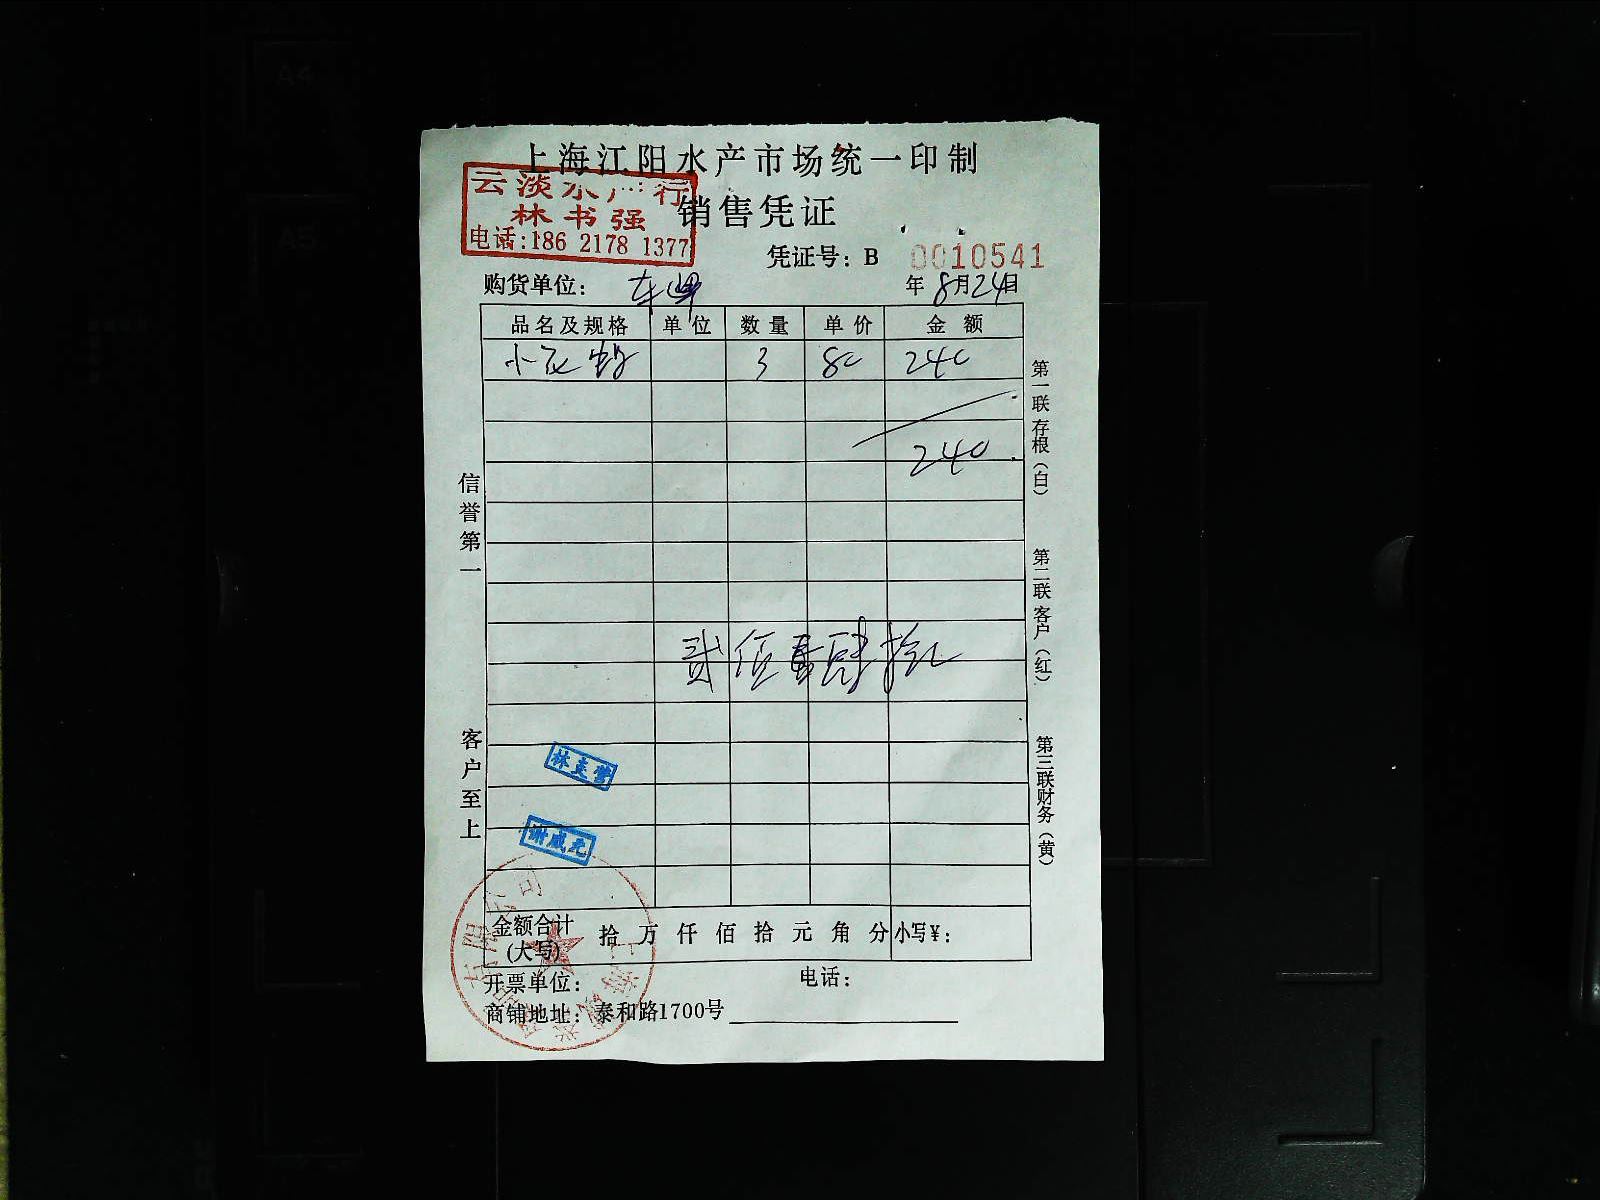 上海江阳水产市场统一印制
云淡水产行
林书强
电话:186 2178 1377
销售凭证
凭证号：B 0010541
购货单位：
年8月24日
品名及规格 单位 数量 单价 金额
小 3 80 240
240
贰佰肆拾
信誉第一
客户至上
第一联存根（白）
第二联客户（红）
第三联财务（黄）
谢成元
金额合计(大写) 拾 万 仟 佰 拾 元 角 分 小写¥：
开票单位： 电话：
商铺地址：泰和路1700号